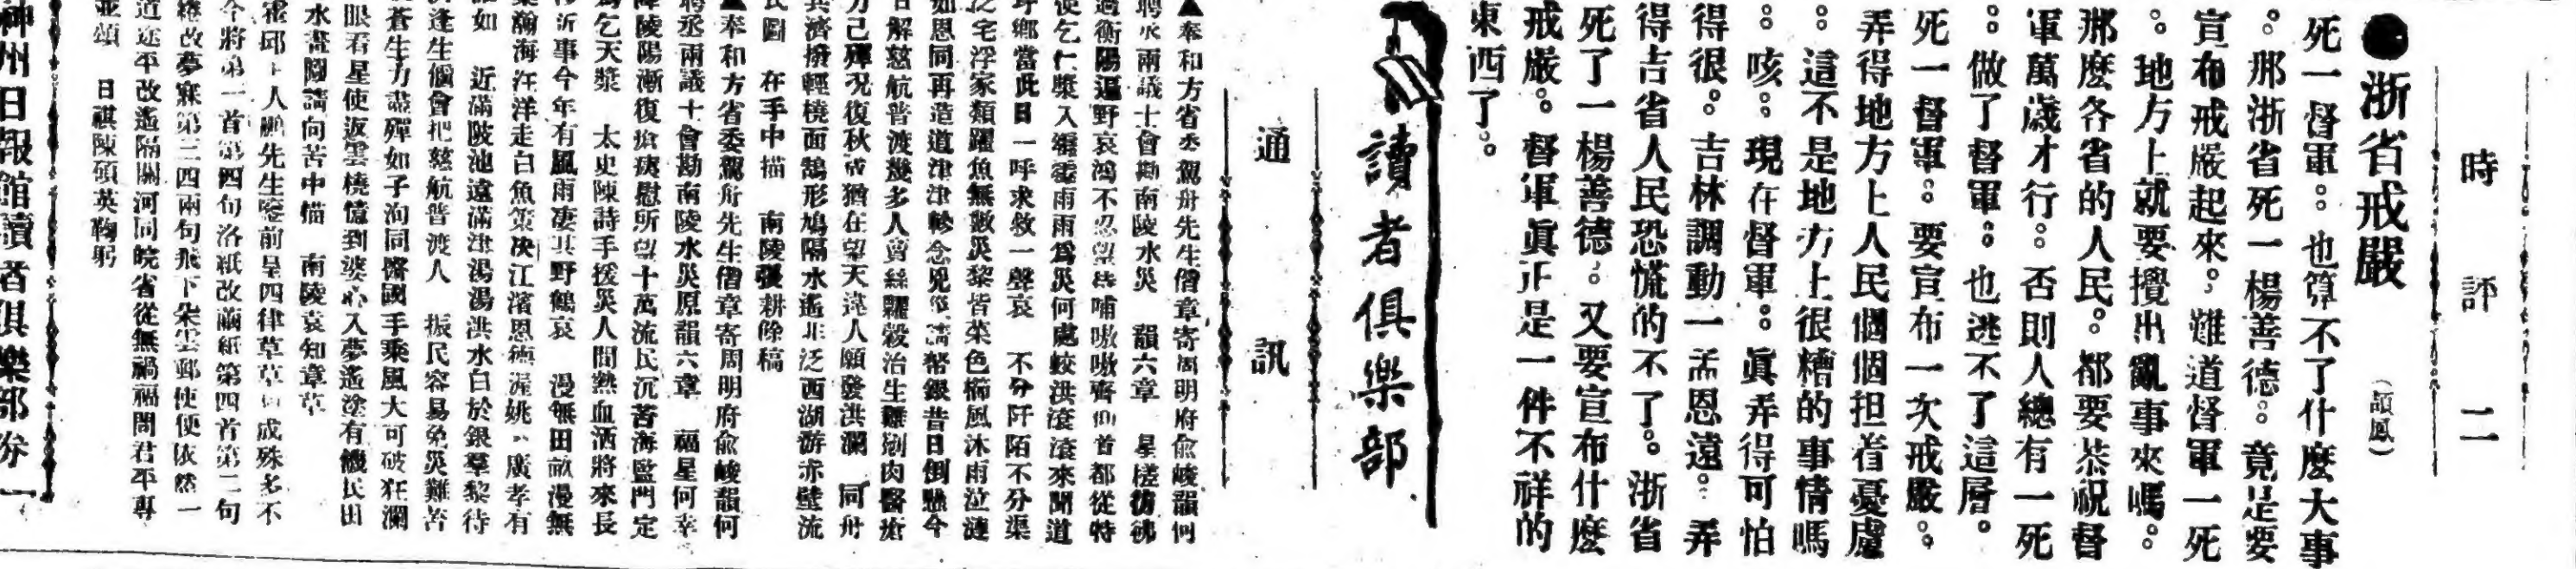 時評二
●浙省戒嚴
死一督軍。也算不了什麽大事
。那浙省死一楊善德。竟是要
宣布戒嚴起來。難道督軍一死
。地方上就要攪出亂事來嗎。
那麽各省的人民。都要恭祝督
軍萬歲才行。否則人總有一死
。做了督軍。也逃不了這層。
死一督軍。要宣布一次戒嚴。
弄得地方上人民個個担着憂慮
。這不是地方上很糟的事情嗎
。咳。現在督軍。眞弄得可怕
得很。吉林調動一孟恩遠。弄
得吉省人民恐慌的不了。浙省
死了一楊善德。又要宣布什麽
戒嚴。督軍眞正是一件不祥的
東西了。
讀者俱樂部
通訊
▲奉和方省委駕舟先生偕章寄周明府俞峻韻何
聘丞兩議士會勘南陵水災 韻六章 星槎彷彿
過衡陽遍野哀鴻不忍望 哺嗷嗷齊仰首都從特
使乞仁漿入 雨雨爲災何處蛟洪滾滾來聞道
鄉當此日一呼求救一聲哀 不分阡陌不分渠
宅浮家類躍魚無數災黎皆菜色櫛風沐雨泣漣
如恩同再造道津津軫念 幣銀昔日倒懸今
日解慈航普渡幾多人賣絲糶穀治生難剜肉醫瘡
力已殫 復秋 猶在望天 人願發洪瀾 同舟
共濟 輕橈面鵠形鳩隔水遙非泛西湖游赤壁流
民圖 在手中描 南陵張耕餘稿
▲奉和方省委駕舟先生偕章寄周明府俞峻韻何
聘丞兩議士會勘南陵水災原韻六章 福星何幸
陵陽漸復瘡痍慰所望十萬流民沉苦海監門定
乞天漿 太史陳詩手援災人間熱血洒將來長
事今年有風雨凄其野鶴哀 漫無田畝漫無
瀚海汪洋走白魚策决江濱恩德渥姚 廣孝有
如 近滿陂池遠滿津湯湯洪水白於銀羣黎待
逢生個會把慈航普渡人 振民容易免災難苦
蒼生力盡殫如子 同 國手乘風大可破狂瀾
眼看星使返雲橈憶到婆心入夢遙塗有饑民田
水畫圖請向苦中描 南陵袁知章草
霍邱 人鵬先生鑒前呈四律草草 成殊多不
今將第一首第四句洛紙改繭紙第四首第二句
改夢寐第三四兩句飛下朵雲郵使便依然一
道 平改遙隔關河同皖省從無禍福問君平專
並頌 日祺陳碩英鞠躬
神州日報館讀者俱樂部券